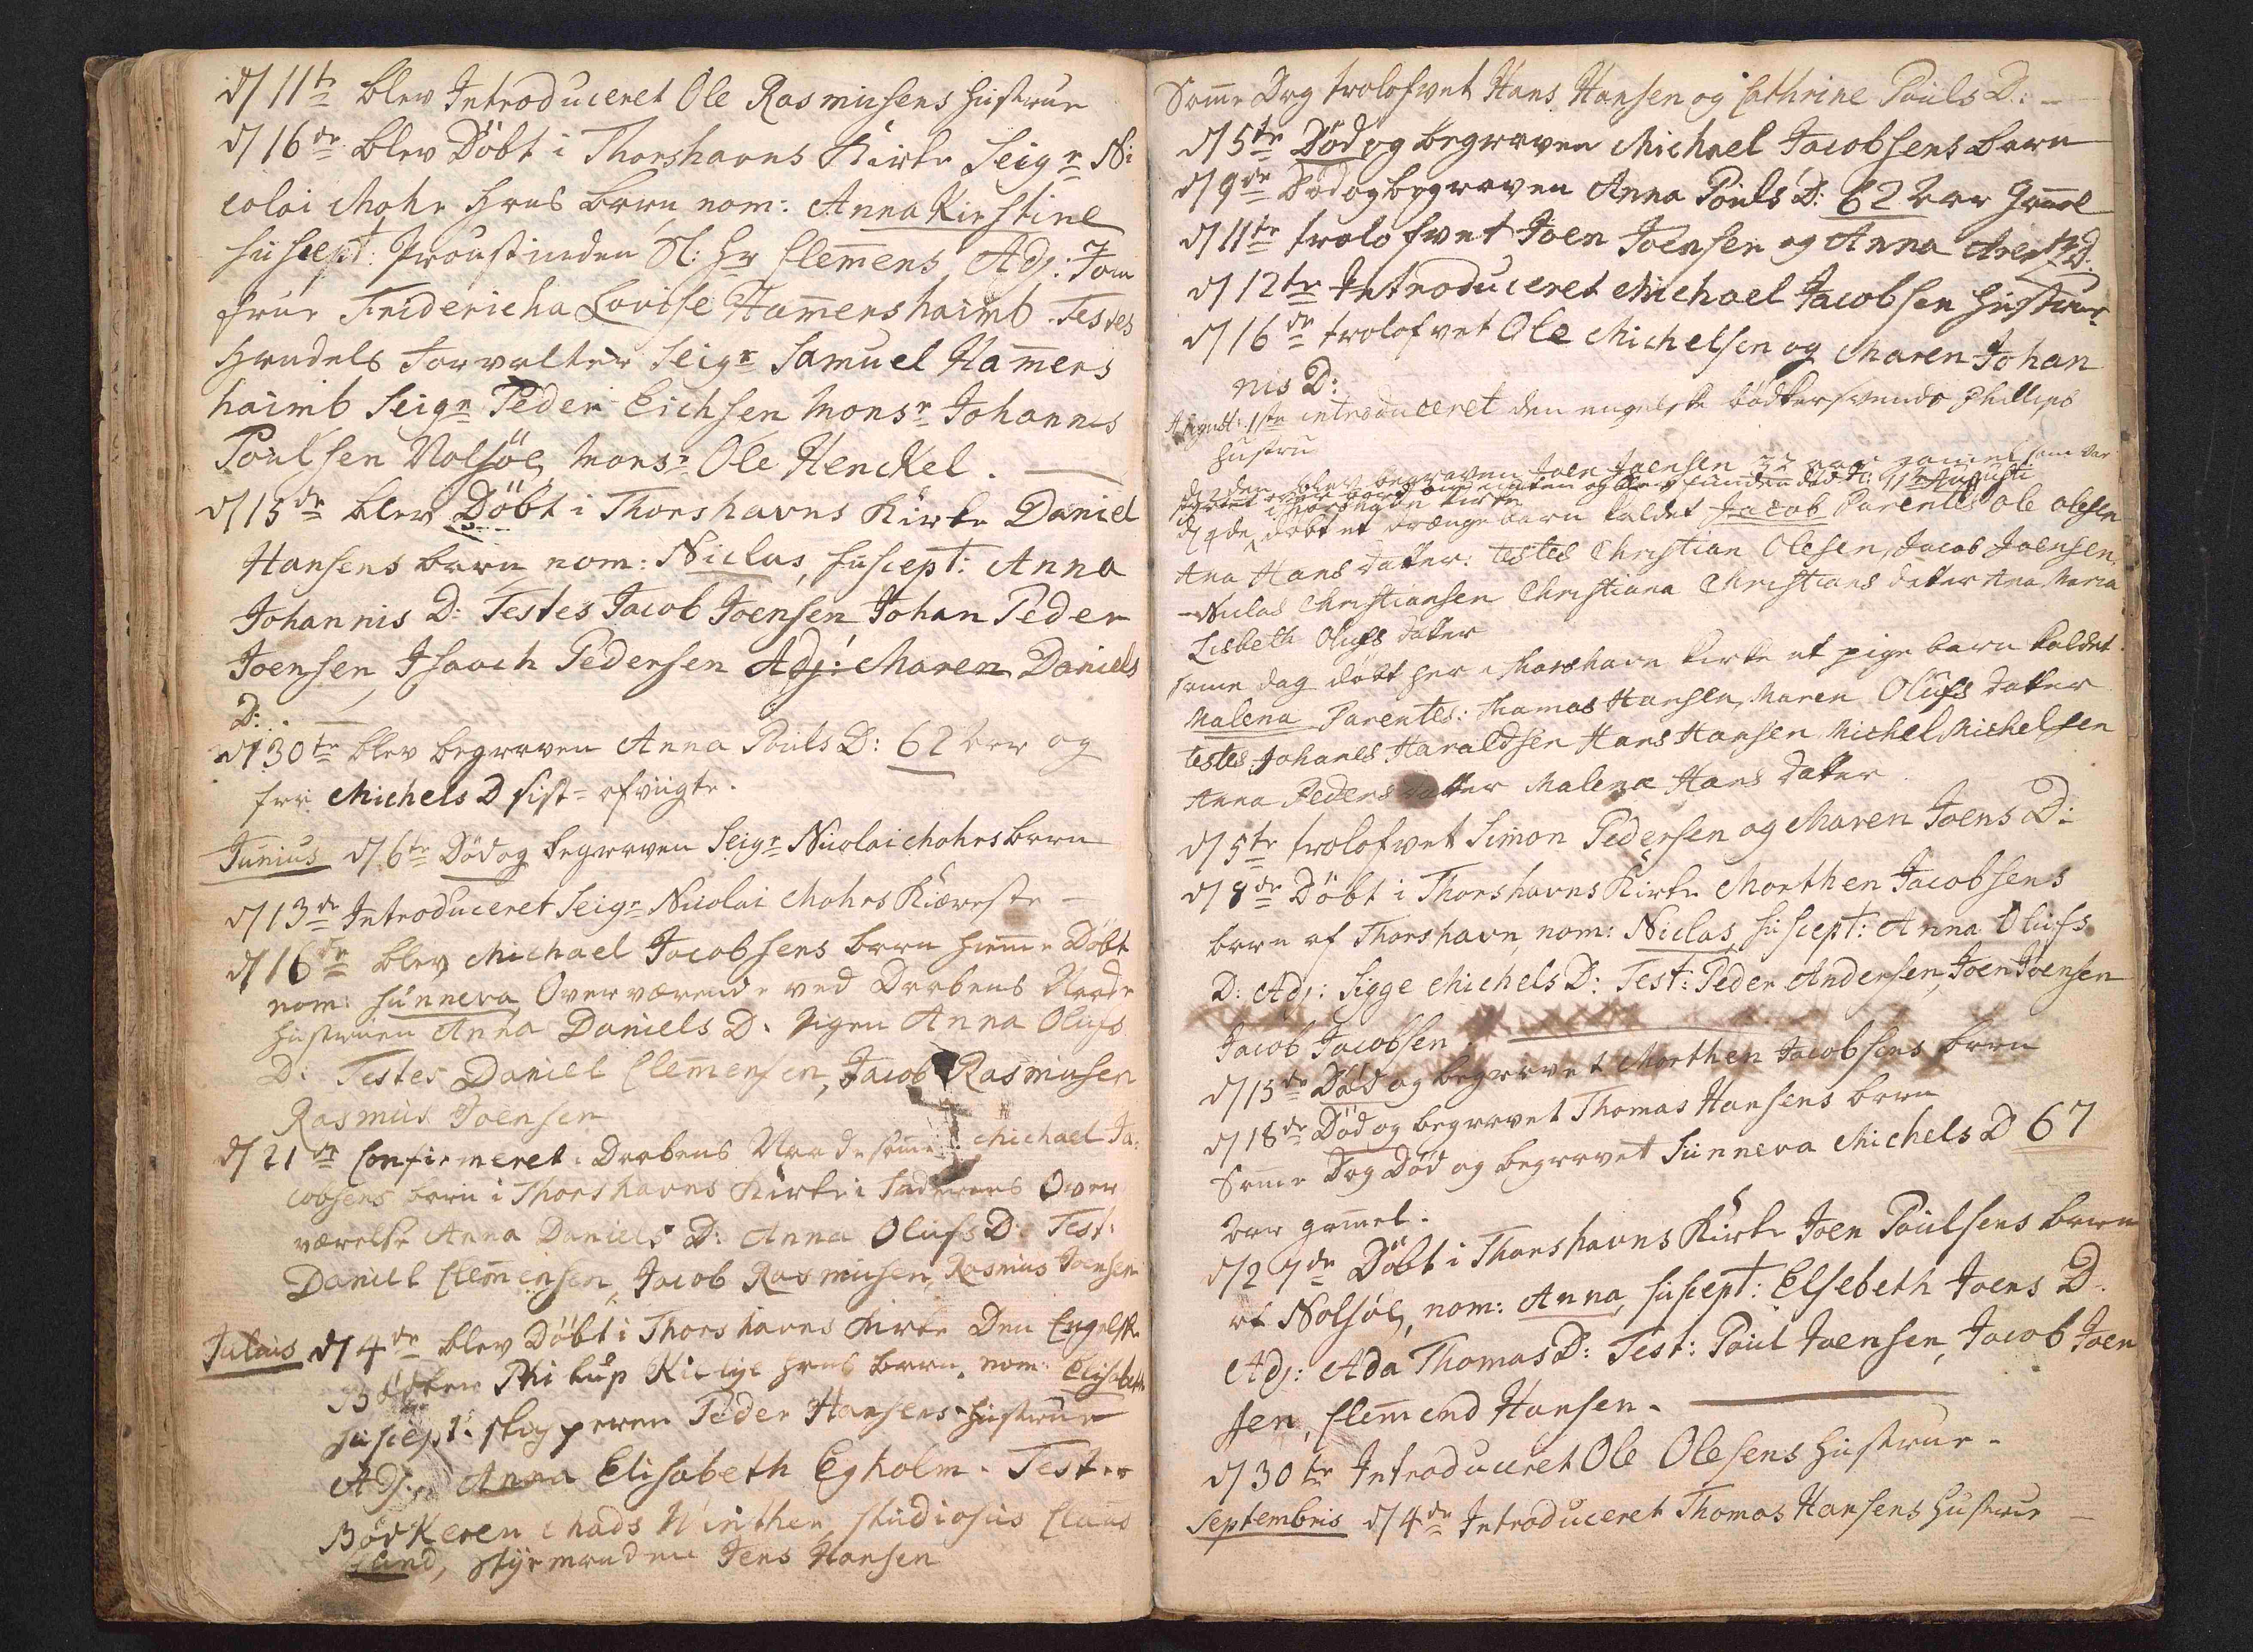 d/ 11te blev Introduceret Ole Rasmusens Hustrue
d/ 16de blev Döbt i Thorshavns Kirke Seigr Ni
colai Mohr Hans barn nom: Anna Kirstine
suscept: Proustinden Sl: Hr Clemens, Adj: Jom
frue Fridericha Lovise Ham̄ershaimb. Testes
Handels Forvalter Seigr Samuel Ham̄ers
haimb Seigr Peder Eichsen Monsr Johannes
Poulsen Nolsöe, Monsr Ole Henckel.
d/ 15de blev Döbt i Thorshavns Kirke Daniel
Hansens barn nom: Niclas, suscept: Anna
Johannis D: Testes Jacob Joensen Johan Peder
Joensen, Isaach Pedersen Adj: Maren Daniels
D:
d/ 30te blev begraven Anna Pouls D: 62 Aar og
Michels D
Junius d/ 6te Död og begraven Seigr Nicolai Mohrs barn
d/ 13de Introduceret Seigr Nicolai Mohrs Kiæreste
d/ 16de blev Michael Jacobsens barn hiem̄e Döbt
nom: Sunneva Overværende ved Daabens Naade
Hustruen Anna Daniels D. Pigen Anna Olufs
D: Testes Daniel Clem̄ensen, Jacob Rasmusen
Rasmus Joensen
d/ 21de Confirmeret Daabens Naade Michael Ja
cobsens barn i Thorshavns Kirke i Faderens Over
værelse Anna Daniels D: Anna Olufs D: Test:
Daniel Clem̄ensen, Jacob Rasmusen, Rasmus Joensen
Julius d/ 4de blev Döbt i Thorshavns Kirke Den Engelske
Bödker Philup Hans barn, nom: Elisabeth
suscept: skipperen Peder Hansens Hustrue
Adj: Anna Elisabeth Egholm. Test:
Bödkeren Mads Winther, studiosus Claus
Lund, styrmanden Jens Hansen
Som̄e Dag trolofvet Hans Hansen og Cathrine Pouls D:
d/ 5te Död og begraven Michael Jacobsens barn
d/ 9de Död og begraven Anna Pouls D: 62 Aar gam̄el
d/ 11te trolofvet Joen Joensen og Anna D:
d/ 12te Introduceret Michael Jacobsen Hustrue
d/ 16de trolofvet Ole Michelsen og Maren Johan
nis D:
August: 1ste introduceret den engelske bödkersvends Phillips
Hustru
d/ 2den blev begraven Joen Joensen 32 aar gamel som var
og blev funden död
d/ 4de döbt et drænge barn kaldet Jacob Parentes ole olesen
Ana Hans datter: testes Christian Olesen, Jacob Joensen
Niclas Christiansen Christiana Christians datter Ana Maria
Lisbeth Olufs datter
same dag döbt her i thorshavn kirke et pige barn kaldet
Malena Parentes: Thamas Hansen, Maren Olufs datter
testes: Johanes Haraldsen Hans Hansen Michel Michelsen
Anna Peders datter Malena Hans datter
d/ 5te trolofvet Simon Pedersen og Maren Joens D:
d/ 8de Döbt i Thorshavns Kirke Morthen Jacobsens
barn af Thorshavn, nom: Niclas, suscept: Anna Olufs
D: Adj: Sigge Michels D: Test: Peder Andersen, Joen Joensen
Jacob Jacobsen
d/ 15de Död og begravet Morthen Jacobsens barn
d/ 18de Död og begravet Thomas Hansens barn
Som̄e Dag Död og begravet Sunneva Michels D 67
Aar gam̄el.
d/ 27de Döbt i Thorshavns Kirke Joen Poulsens barn
af Nolsöe, nom: Anna, suscept: Elsebeth Joens D:
Adj: Ada Thomas D: Test: Poul Joensen, Jacob Joen
sen, Clem̄end Hansen.
d/ 30te Introduceret Ole Olesens Hustrue.
Septembris d/ 4de Introduceret Thomas Hansens Hustrue